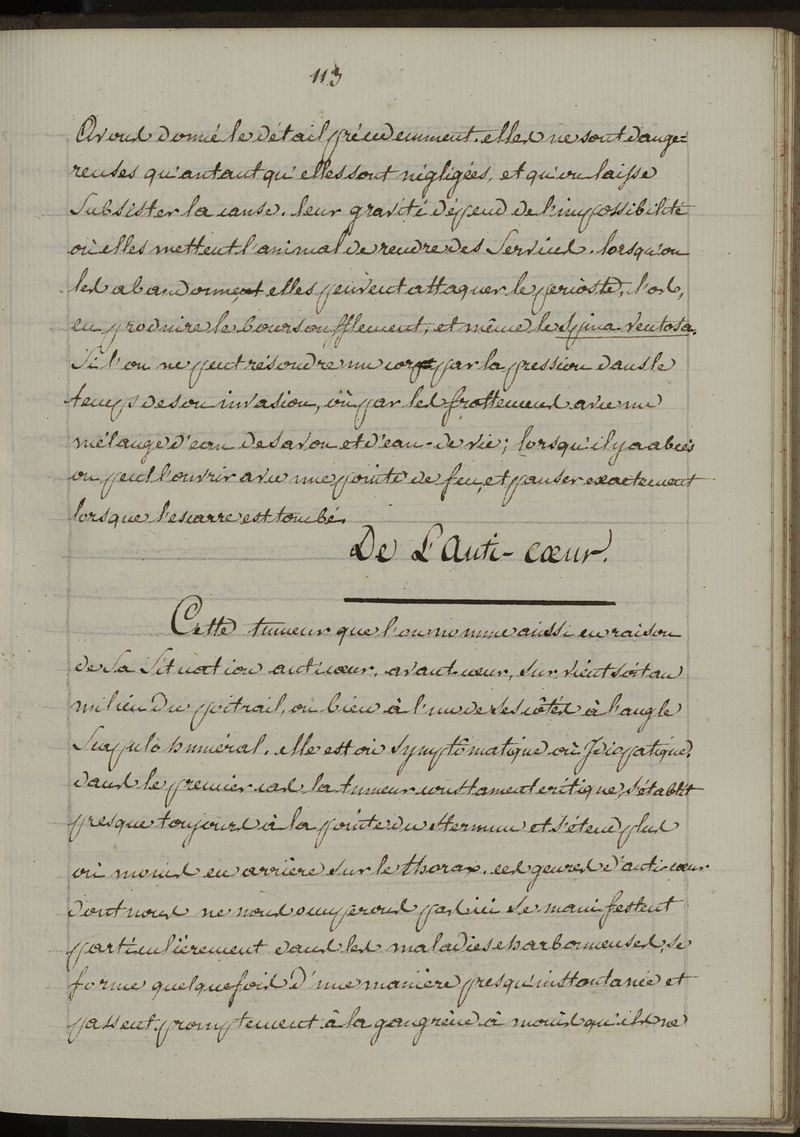 113
avons donné le détail précedemment. elles ne sont dange=
reuses qu'autant qu'elles sont négligées, et qu'on laisse
Subsister la cause. leur gravité dépend de l'impossibilité
où elles mettent l'animal de rendre des Services. lorsqu'on
les abandonnent elles peuvent attaquer le perioste, l'os,
en produire le boursoufflement, et même le spina ventosa.
Si l'on ne peut résoudre un cor par la pression dans le
temps de son invasion, où par les frottements avec un
mélange d'eau de Savon et d'eau-de-vie; lorsqu'il y a abcès
on peut l'ouvrir avec une pointe de feu, et panser exactement
lorsque l'escarre est tombé.
De L'Anti-cœur.
Cette tumeur que l'on nomme aussi en raison
de Sa Situation anticœur, avant-cœur, survient soit au
milieu du poitrail, ou bien à l'un de ses côtés à l'angle
Scapulo huméral. elle est où symptômatique où Idiopatique.
dans le premier cas la tumeur constament critique, s'établit
presque toujours à la pointe du sternum et s'étend plus
où moins en arrière sur le thorax. ces genres d'anti-cœur
dont nous ne nous occuperons pas ici se manifestent
particulièrement dans les maladies charbonneuses, se
forme quelquefois d'une manière presqu'instantanée et
passent promptement à la gangrène à moins qu'ils ne